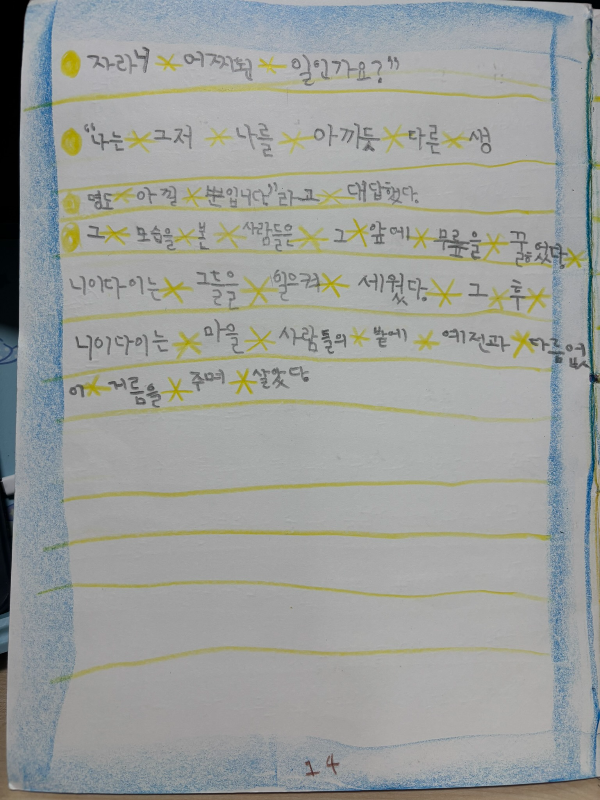 자라니 어찌된 일인가요?"
"나는 그저 나를 아끼듯 다른 생
명도 아낄 뿐입니다"라고 대답했다.
그 모습을 본 사람들은 그 앞에 무릎을 꿇었다.
니이다이는 그들을 일으켜 세웠다. 그 후
니이다이는 마을 사람들의 밭에 예전과 다름없
이 거름을 주며 살았다.
14